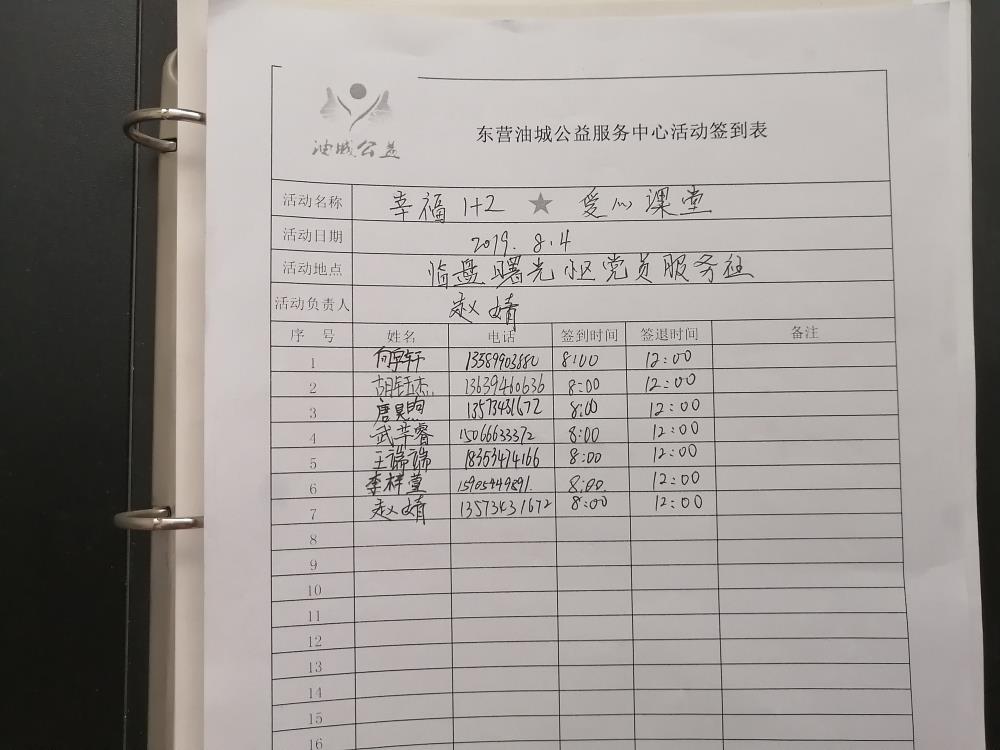 油城公益
东营油城公益服务中心活动签到表
活动名称 幸福1+2 ★ 爱心课堂
活动日期 2019.8.4
活动地点 临盘曙光小区党员服务站
活动负责人 赵婧
序号 姓名 电话 签到时间 签退时间 备注
1 何宇轩 13589903880 8:00 12:00
2 胡钰杰 13639460636 8:00 12:00
3 唐昊煦 13573431672 8:00 12:00
4 武苹睿 15066633372 8:00 12:00
5 王端端 18353474166 8:00 12:00
6 李祥萱 15905449891. 8:00 12:00
7 赵婧 13573431672 8:00 12:00
8
9
10
11
12
13
14
15
16